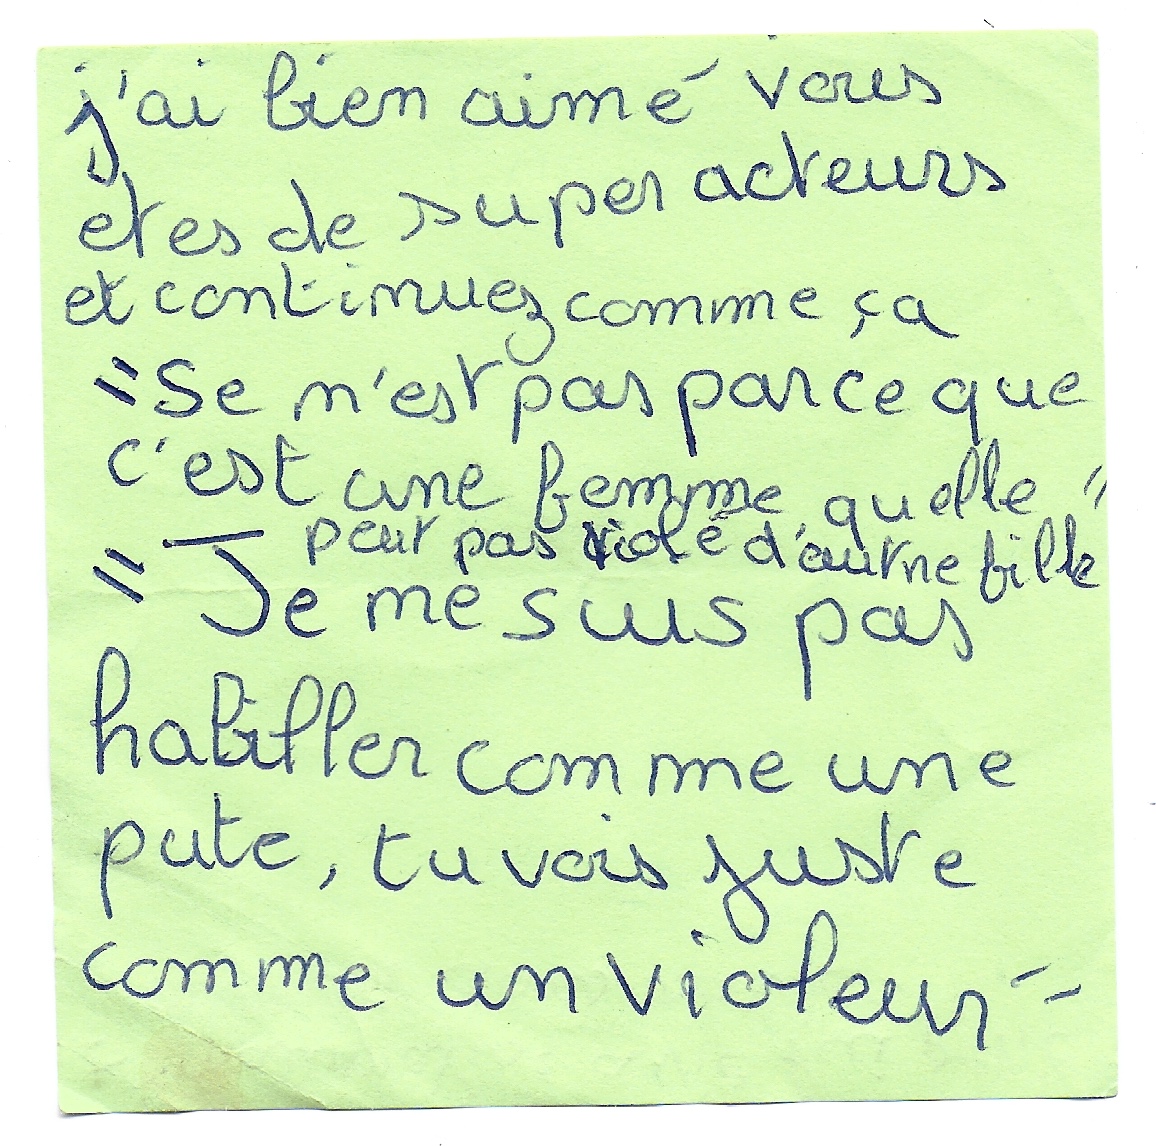 j'ai bien aimé vous
etes de super acteurs
et continuez comme ça
"Se n'est pas parce que
c'est une femme quelle"
peut pas violé d'autne fille
"Je me suis pas
habiller comme une
pute, tu vois juste
comme un violeur"